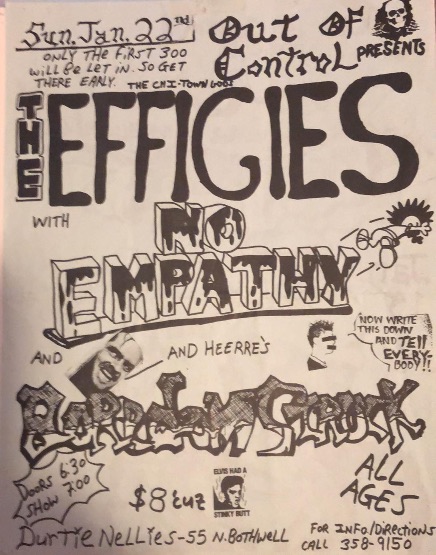 Sun, Jan. 22nd
ONLY THE FIRST 300
WILL BE LET IN. SO GET
THERE EARLY. THE CHI-TOWN GODS
Out Of
Control
PRESENTS
THE
EFFIGIES
WITH
NO
EMPATHY
AND
AND HEERRE'S
NOW WRITE
THIS DOWN
AND TELL
EVERY-
BODY!!
BOREDOM STRUCK
DOORS 6:30
SHOW 7:00
$8
ELVIS HAD A
STINKY BUTT
ALL
AGES
Durtie Nellies-55 N. Bothwell
FOR INFO/DIRECTIONS
CALL 358-9150